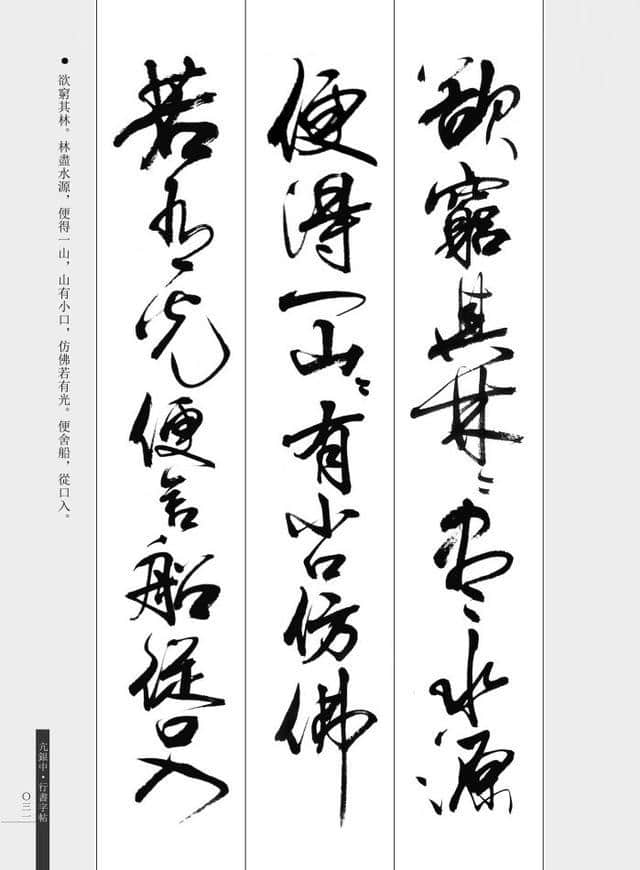 欲窮其林〻盡水源
便得一山〻有小口仿佛
若有光便舍船從口入
● 欲窮其林。林盡水源，便得一山，山有小口，仿佛若有光。便舍船，從口入。
亢銀中·行書字帖
〇三一